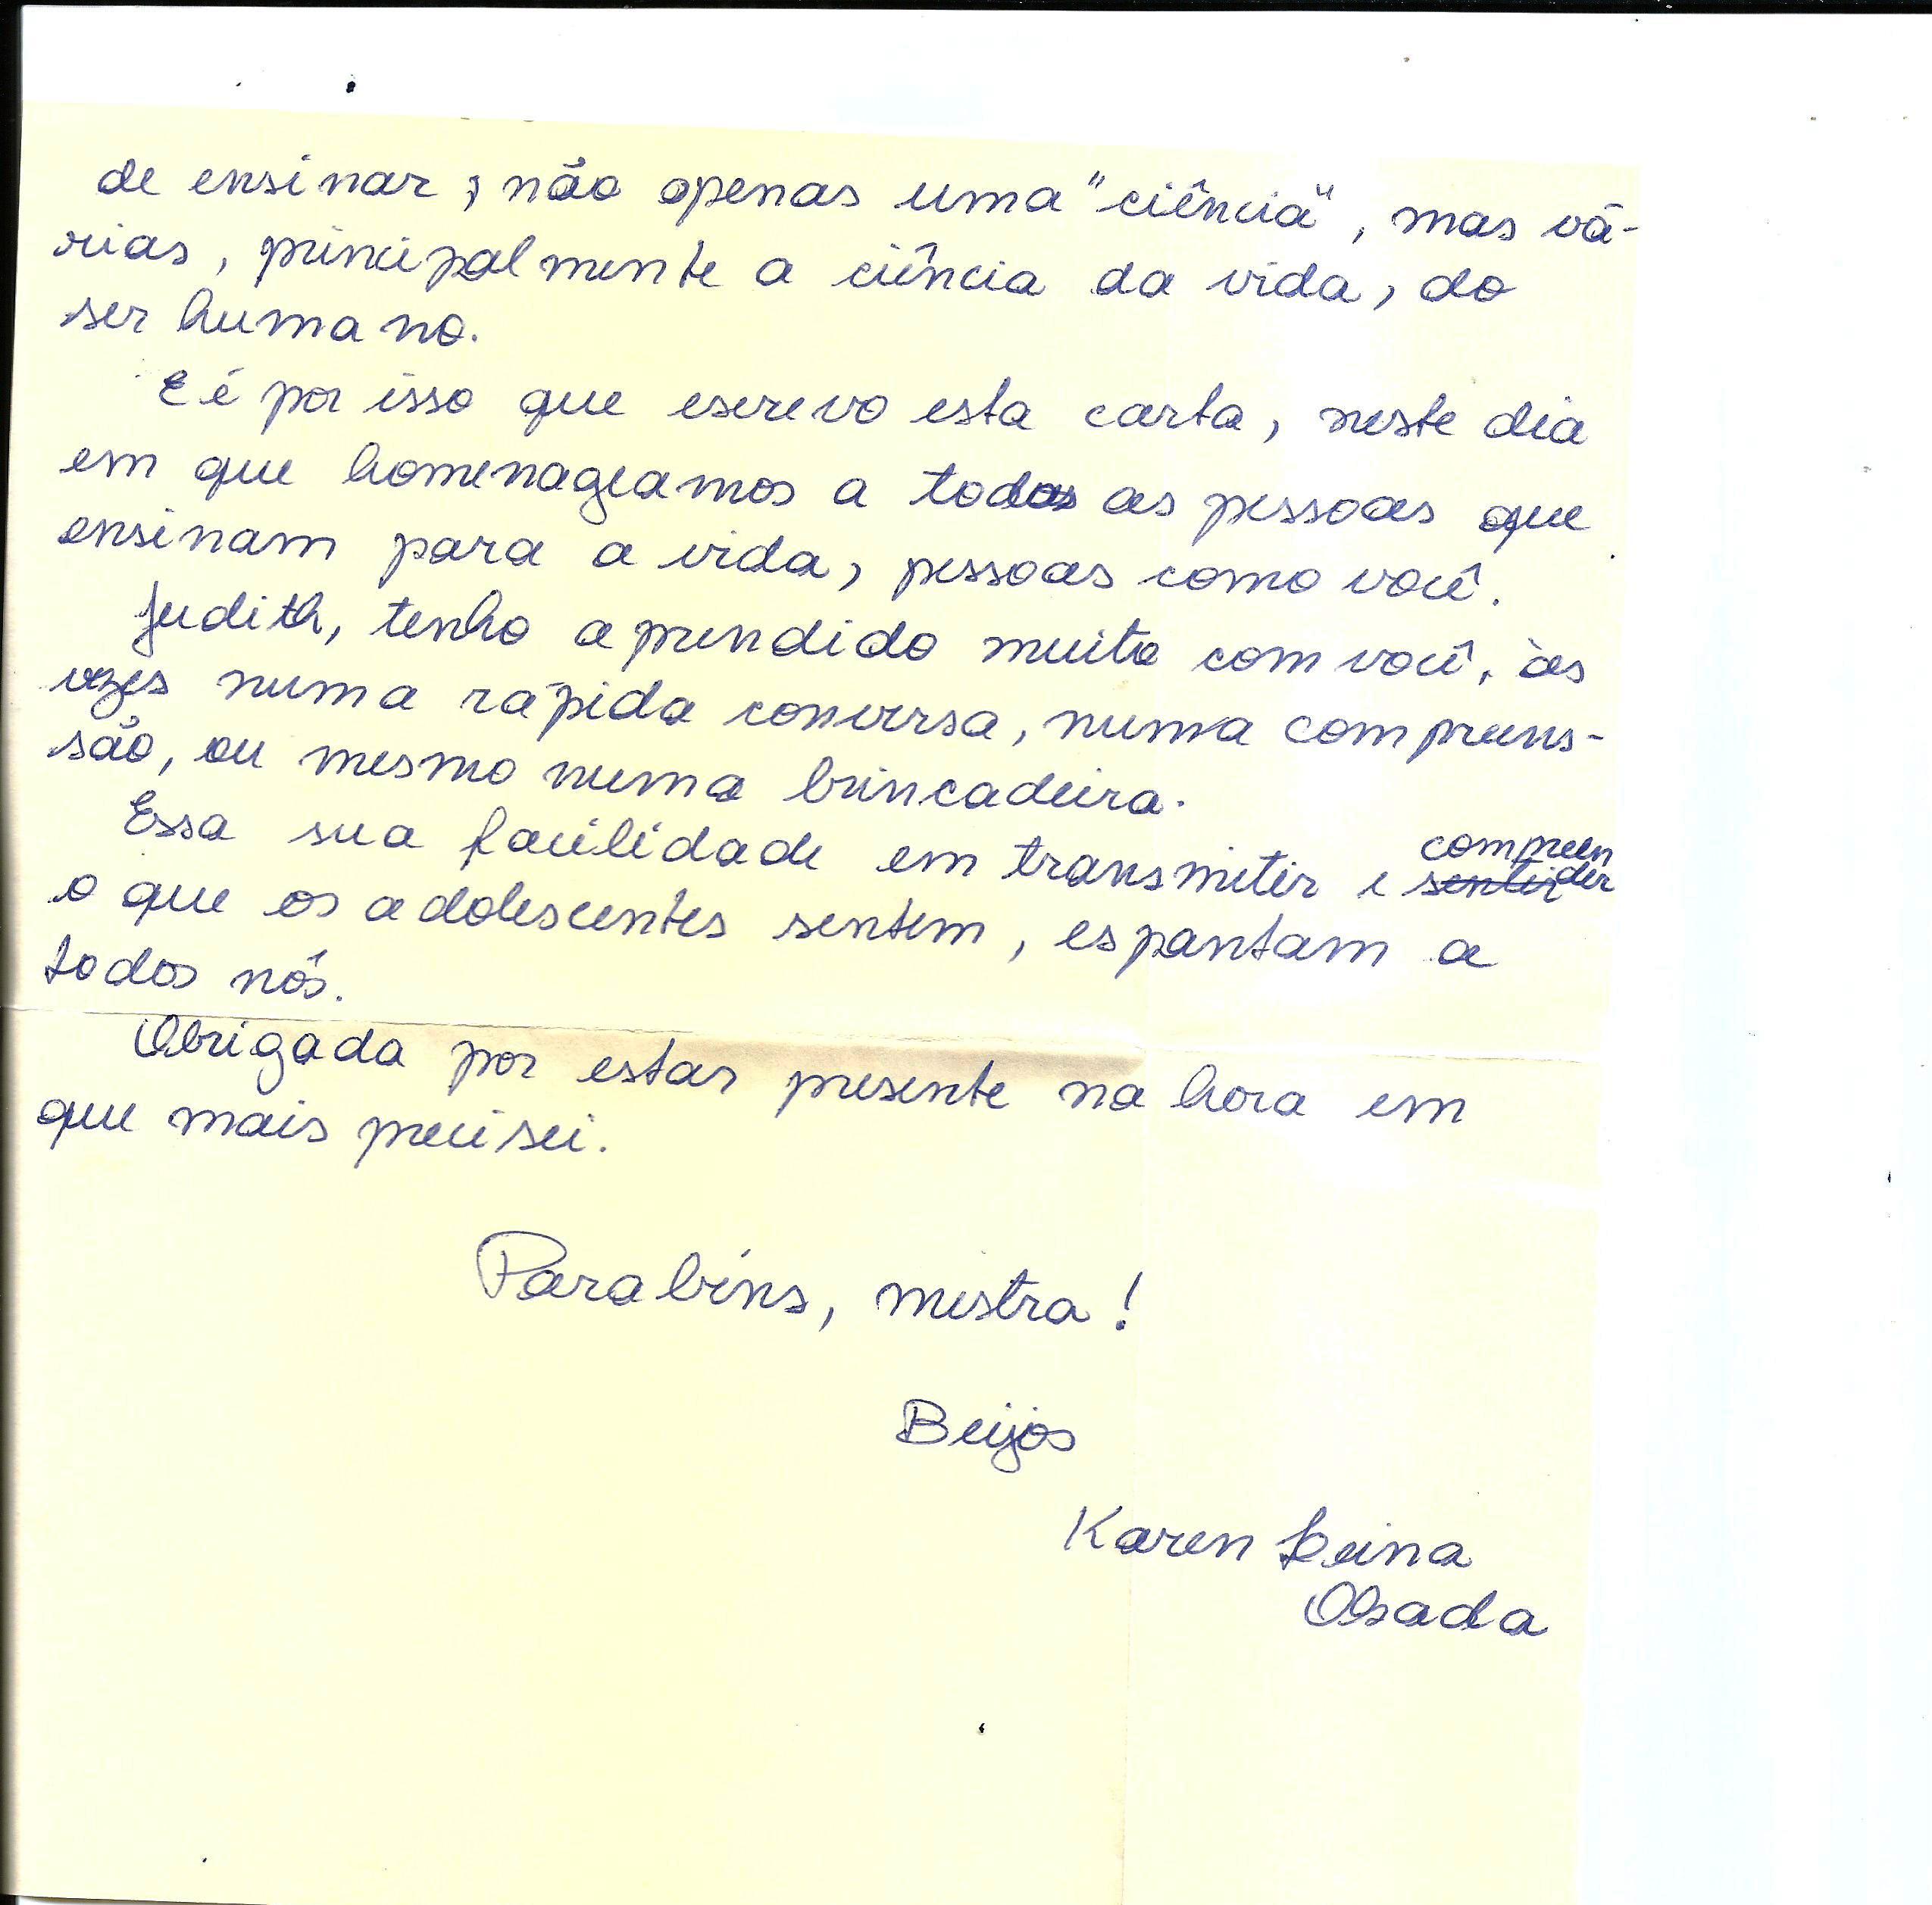 de ensinar, não apenas uma "ciência", mas vá-
rias, principalmente a ciência da vida, do
ser humano.
E é por isso que escrevo esta carta, neste dia
em que homenageamos a todas as pessoas que
ensinam para a vida, pessoas como você.
Judith, tenho aprendido muito com você, às
vezes numa rápida conversa, numa compreens-
são, ou mesmo numa brincadeira.
Essa sua facilidade em transmitir e sentir compreender
o que os adolescentes sentem, espantam a
todos nós.
Obrigada por estar presente na hora em
que mais precisei.
Parabéns, mestra!
Beijos
Karen Leina
Osada